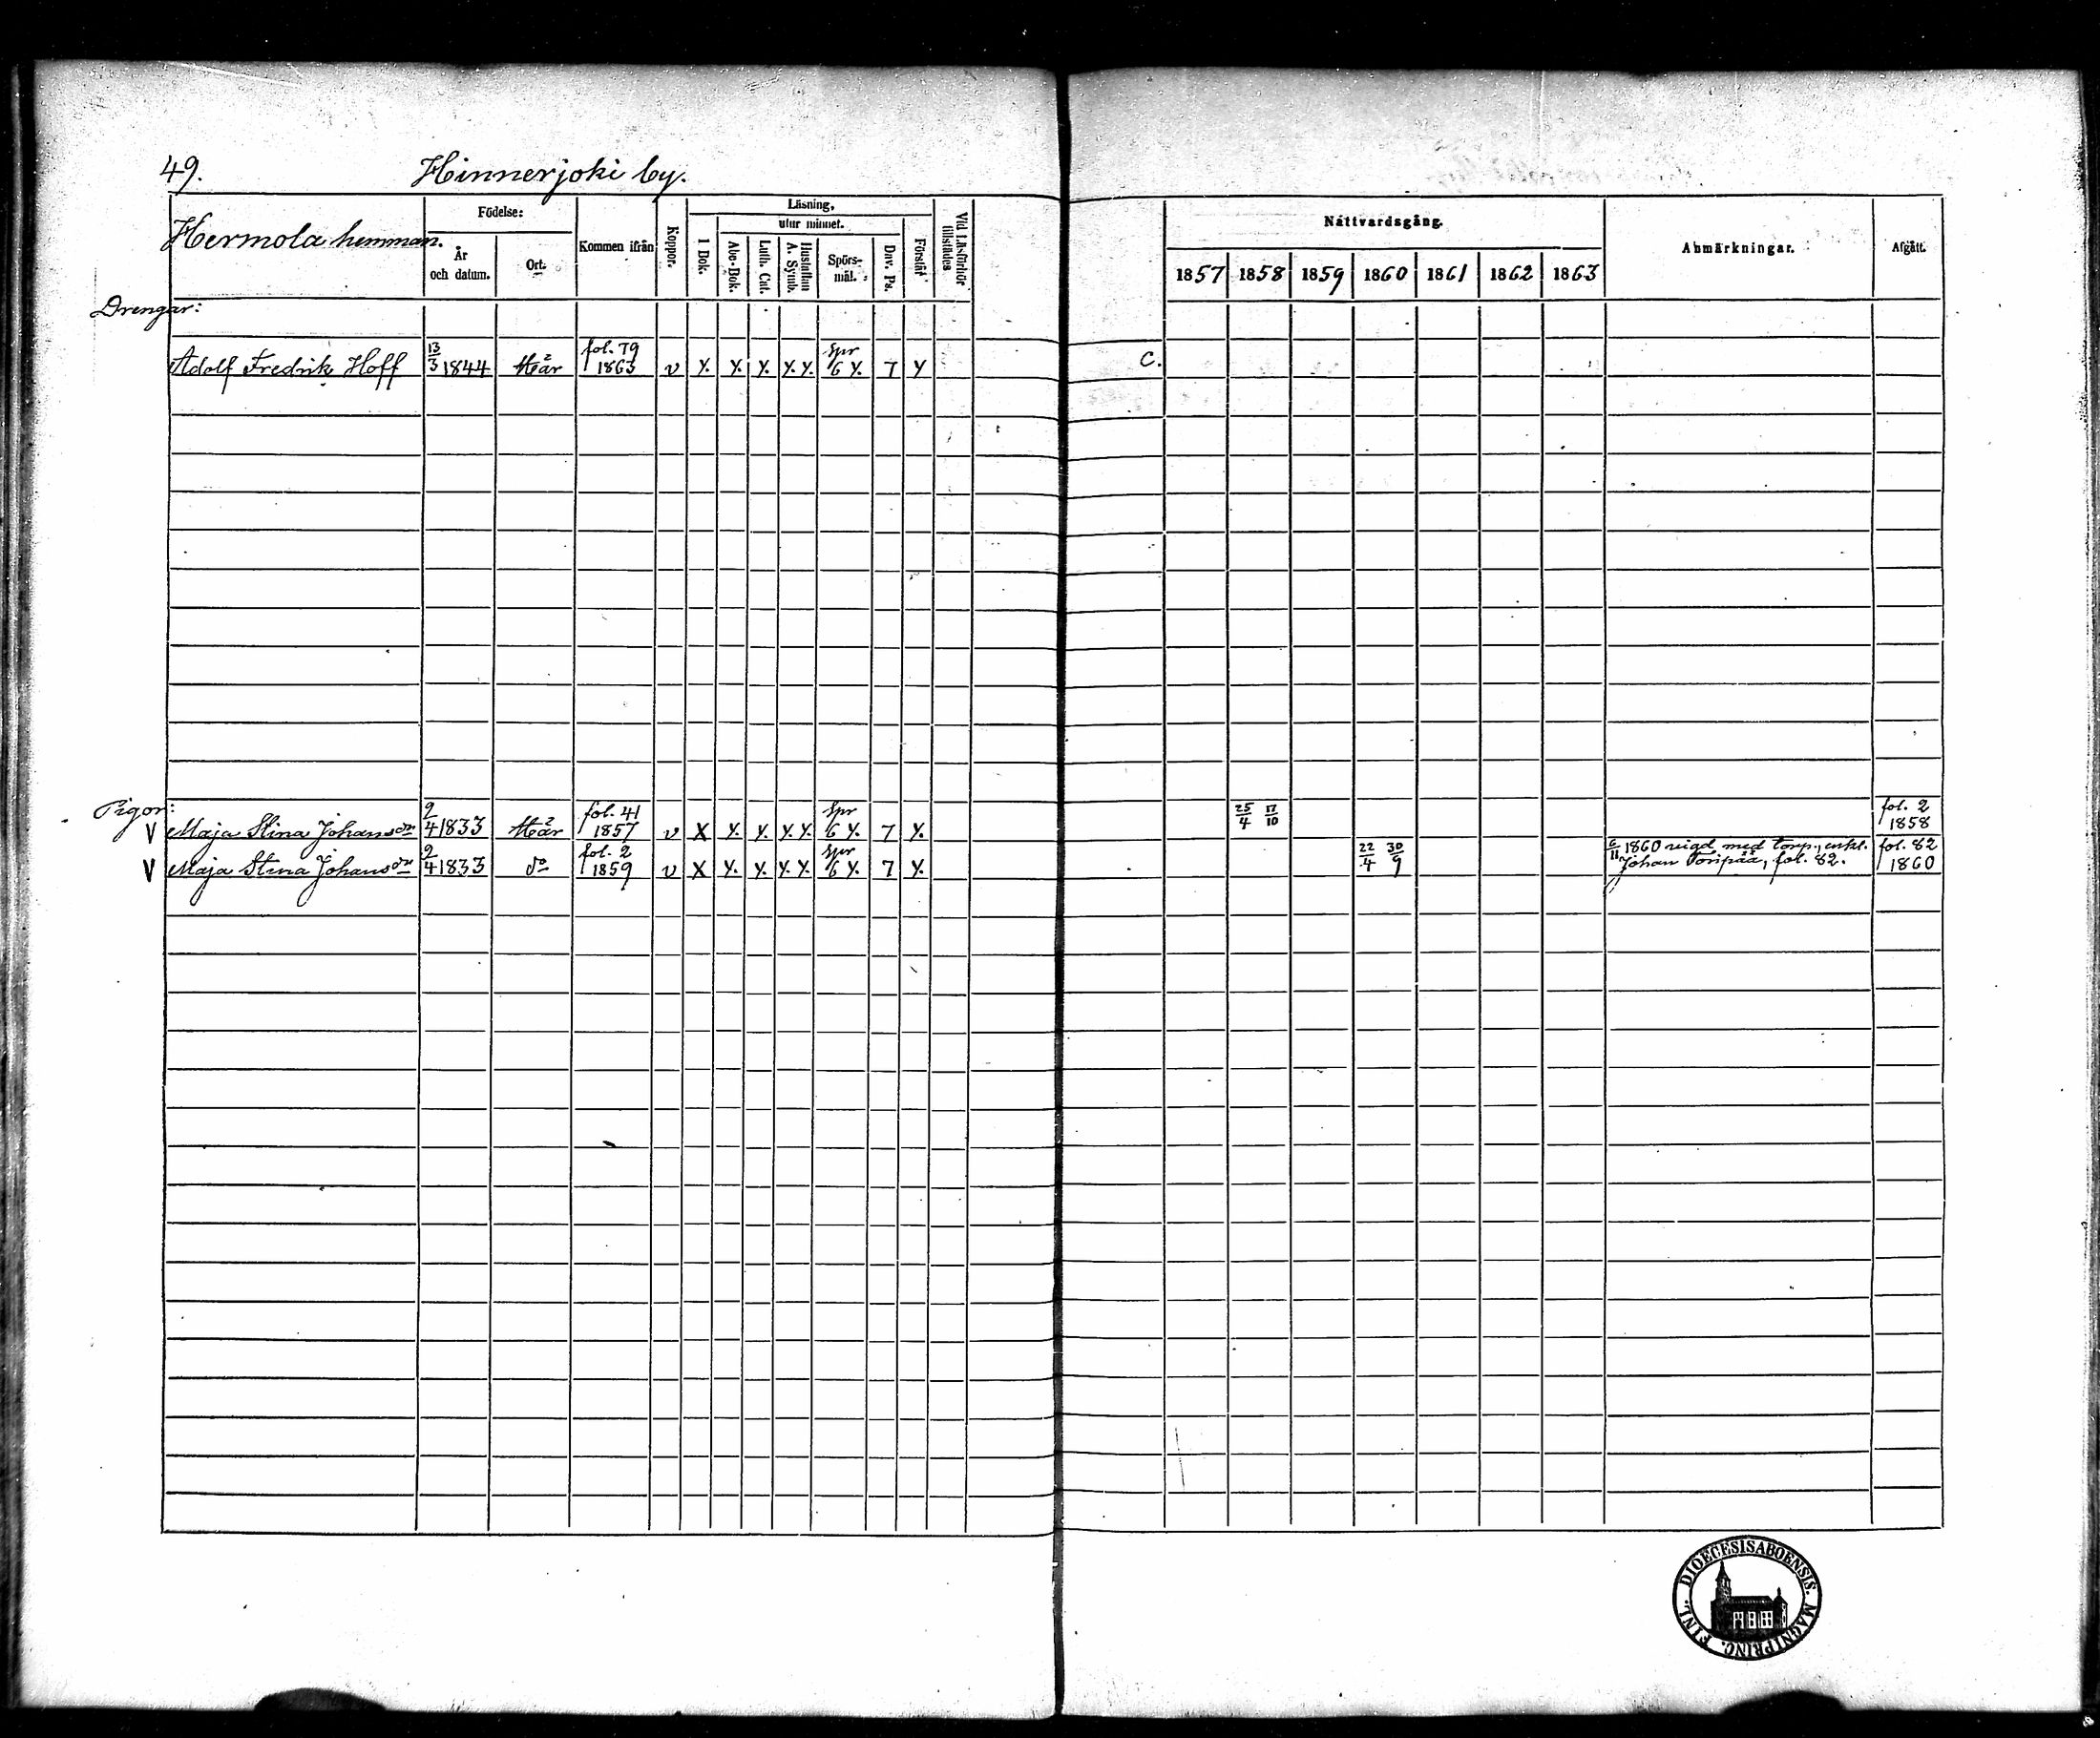 49. Hinnerjoki by.
Hermola hemman.
Födelse:
År och datum.
Ort.
Kommen ifrån
Koppor.
Läsning,
utur minnet.
I Bok.
Abc-Bok.
Luth. Cat.
Hustaflan A. Symb.
Spörs-mål.
Dav. Ps.
Förstår
Vid Läsförhör tillstädes
Nattvardsgång.
1857 1858 1859 1860 1861 1862 1863
Anmärkningar.
Afgått.
Drengar:
Adolf Fredrik Hoff 13/3 1844 här fol. 79 1863 v y. y. y. y. y. Spr 6 y. 7 y C.
Pigor:
V Maja Stina Johansdr 2/4 1833 här fol. 41 1857 v X y. y. y. y. Spr 6 y. 7 y. 25/4 17/10 fol. 2 1858
V Maja Stina Johansdr 2/4 1833 do fol. 2 1859 v X y. y. y. y. Spr 6 y. 7 y. 22/4 30/9 6/11 1860 vigd med torp., enkl. Johan Poripää, fol. 82. fol. 82 1860
DIOECESIS ABOENSIS. MAGNI PRINC. FINL.